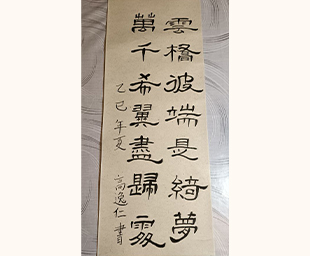 雲橋彼端是綺夢
萬千希翼盡歸處
乙巳年夏
高逸仁書